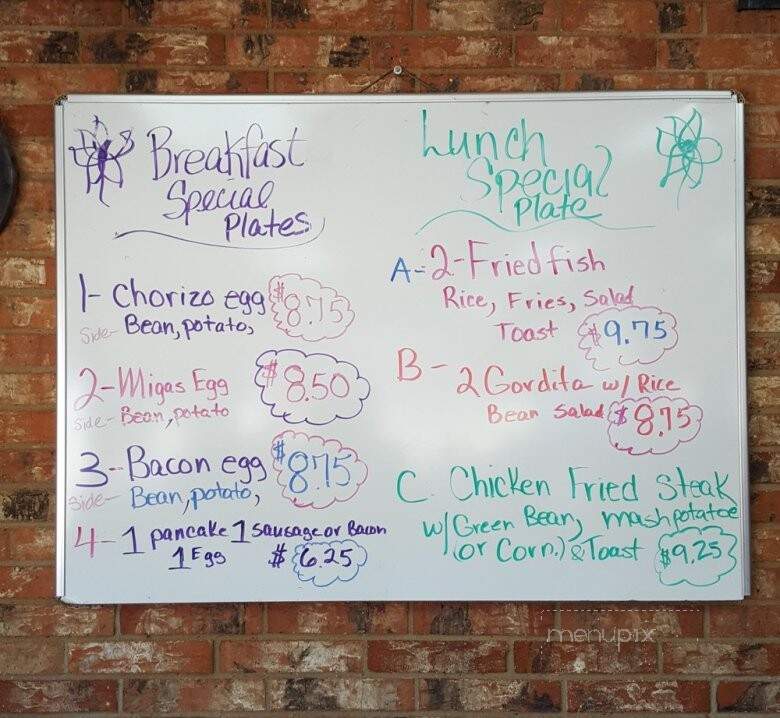 Breakfast
Special
Plates
1- Chorizo egg $8.75
Side- Bean, potato,
2- Migas Egg $8.50
side- Bean, potato
3- Bacon egg $8.75
side- Bean, potato,
4- 1 pancake 1 sausage or Bacon
1 Egg $6.25
Lunch
Special
Plate
A- 2-Fried fish
Rice, Fries, Salad
Toast $9.75
B- 2 Gordita w/ Rice
Bean Salad $8.75
C. Chicken Fried Steak
w/(Green Bean, mash potatoe
(or Corn.) & Toast $9.25
menupix